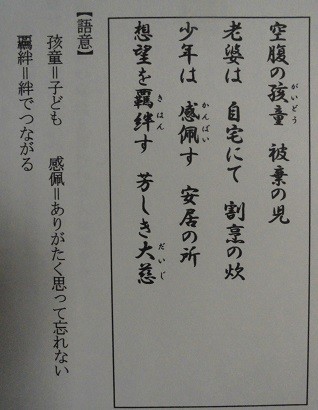 空腹の孩童　被棄の児
老婆は　自宅にて　割烹の炊
少年は　感佩す　安居の所
想望を羈絆す　芳しき大慈
【語意】
孩童＝子ども　感佩＝ありがたく思って忘れない
羈絆＝絆でつながる